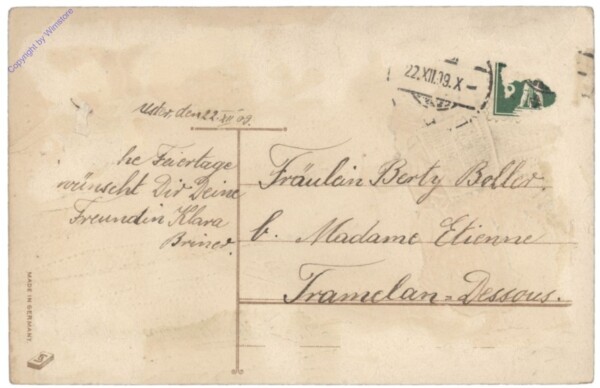 Copyright by Wimstore
22.XII.09.X-
Uster, den 22. XII 09.
he Feiertage
wünscht Dir Deine
Freundin Klara
Briner.
Fräulein Berty Boller.
b. Madame Etienne
Tramelan-Dessous.
MADE IN GERMANY.